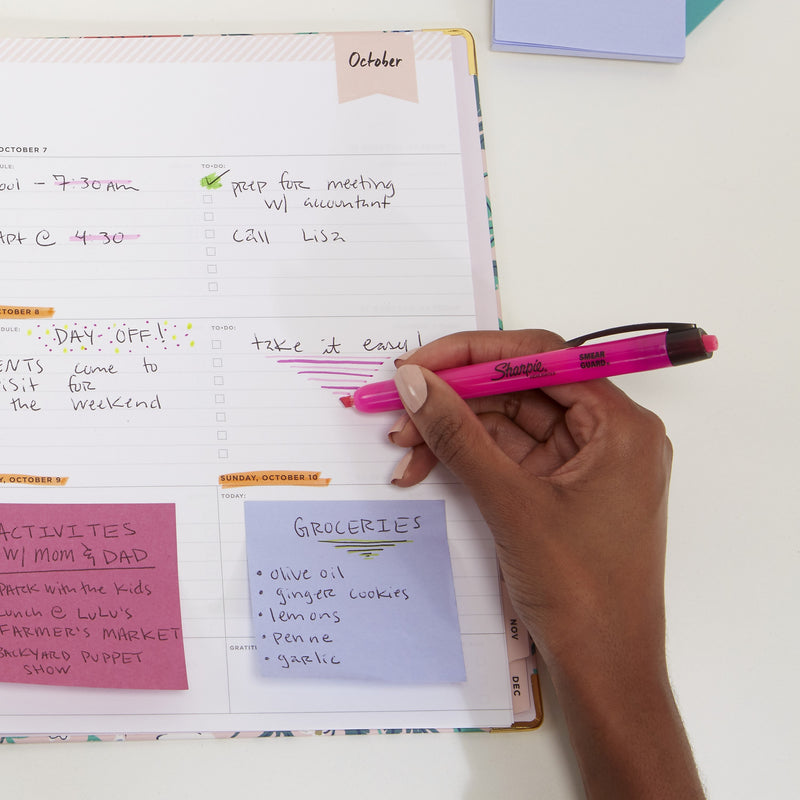 October
OCTOBER 7
TO-DO:
7:30 AM
prep for meeting
w/ accountant
@ 4:30
Call Lisa
OCTOBER 8
TO-DO:
DAY OFF!
take it easy!
come to
for
the weekend
Sharpie
SMEAR
GUARD
OCTOBER 9
SUNDAY, OCTOBER 10
TODAY:
ACTIVITES
w/ Mom & DAD
PARK with the kids
Lunch @ LuLu's
FARMER'S MARKET
BACKYARD PUPPET
SHOW
GROCERIES
• olive oil
• ginger cookies
• lemons
• penne
• garlic
NOV
DEC